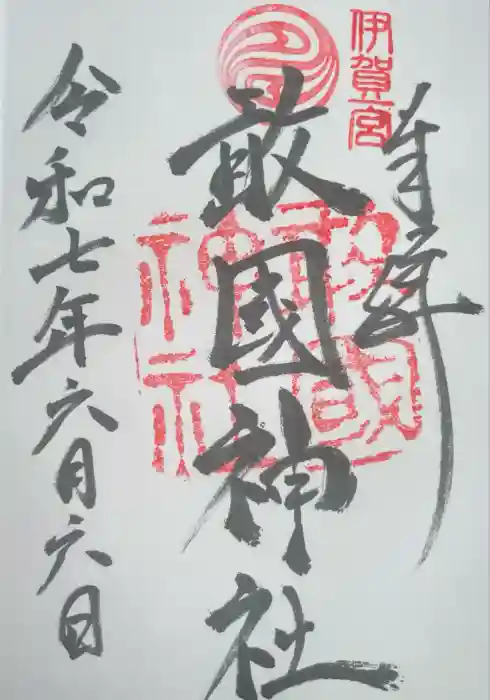 伊賀宮
奉拝
敢國神社
敢國
神社
令和七年六月六日